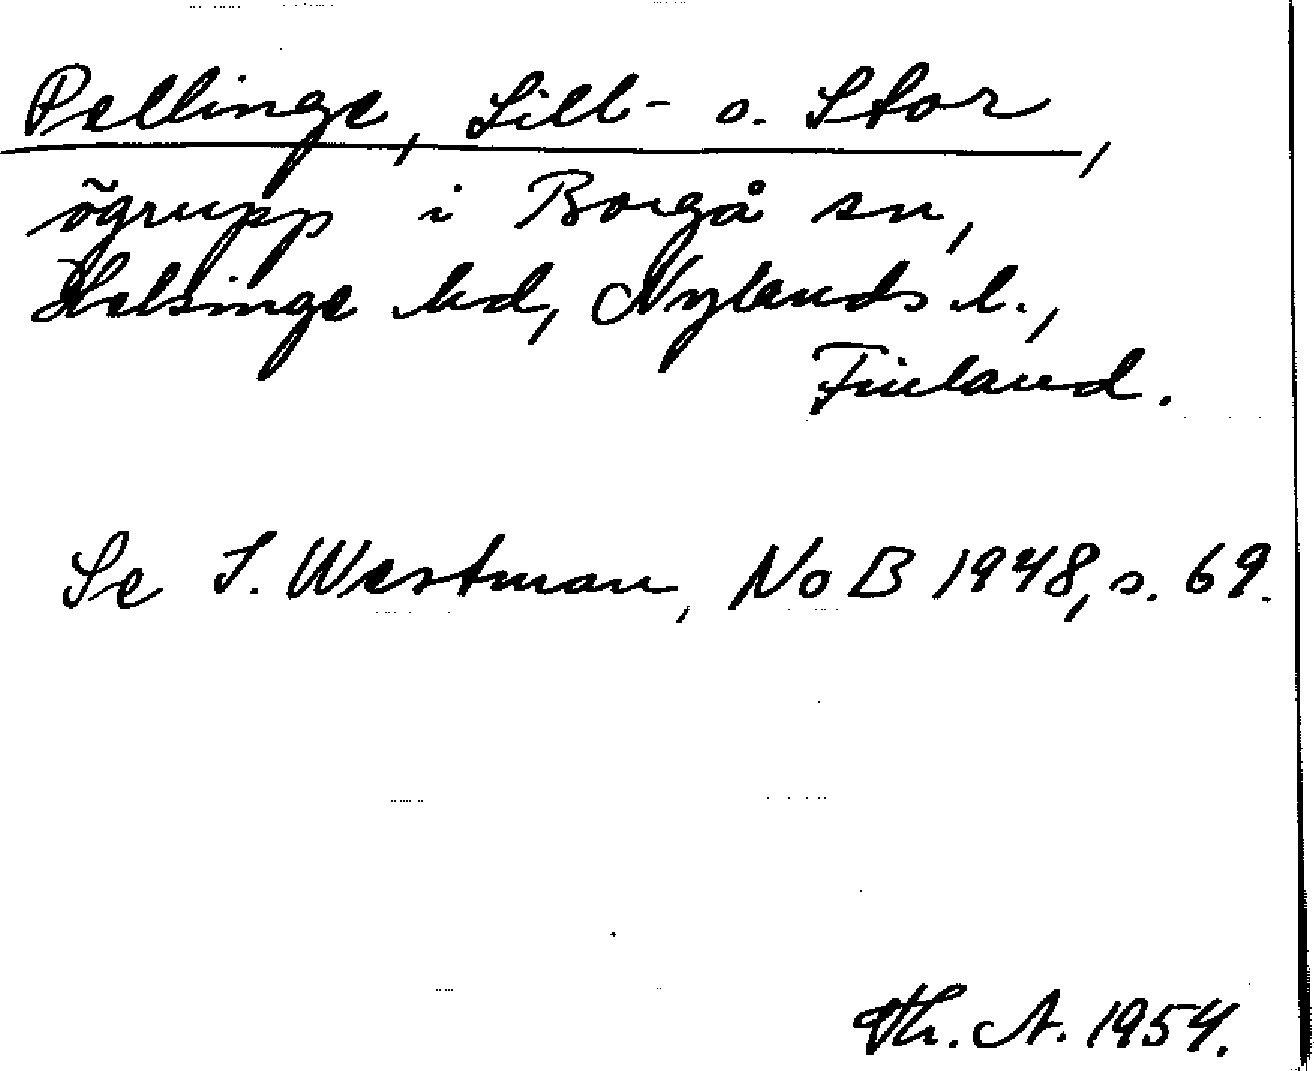 Pellinge, Lill- o. Stor,
ögrupp i Borgå sn,
Helsinge hd, Nylands l.,
Finland.
Se I. Westman, NoB 1948, s. 69.
Th. A. 1954.